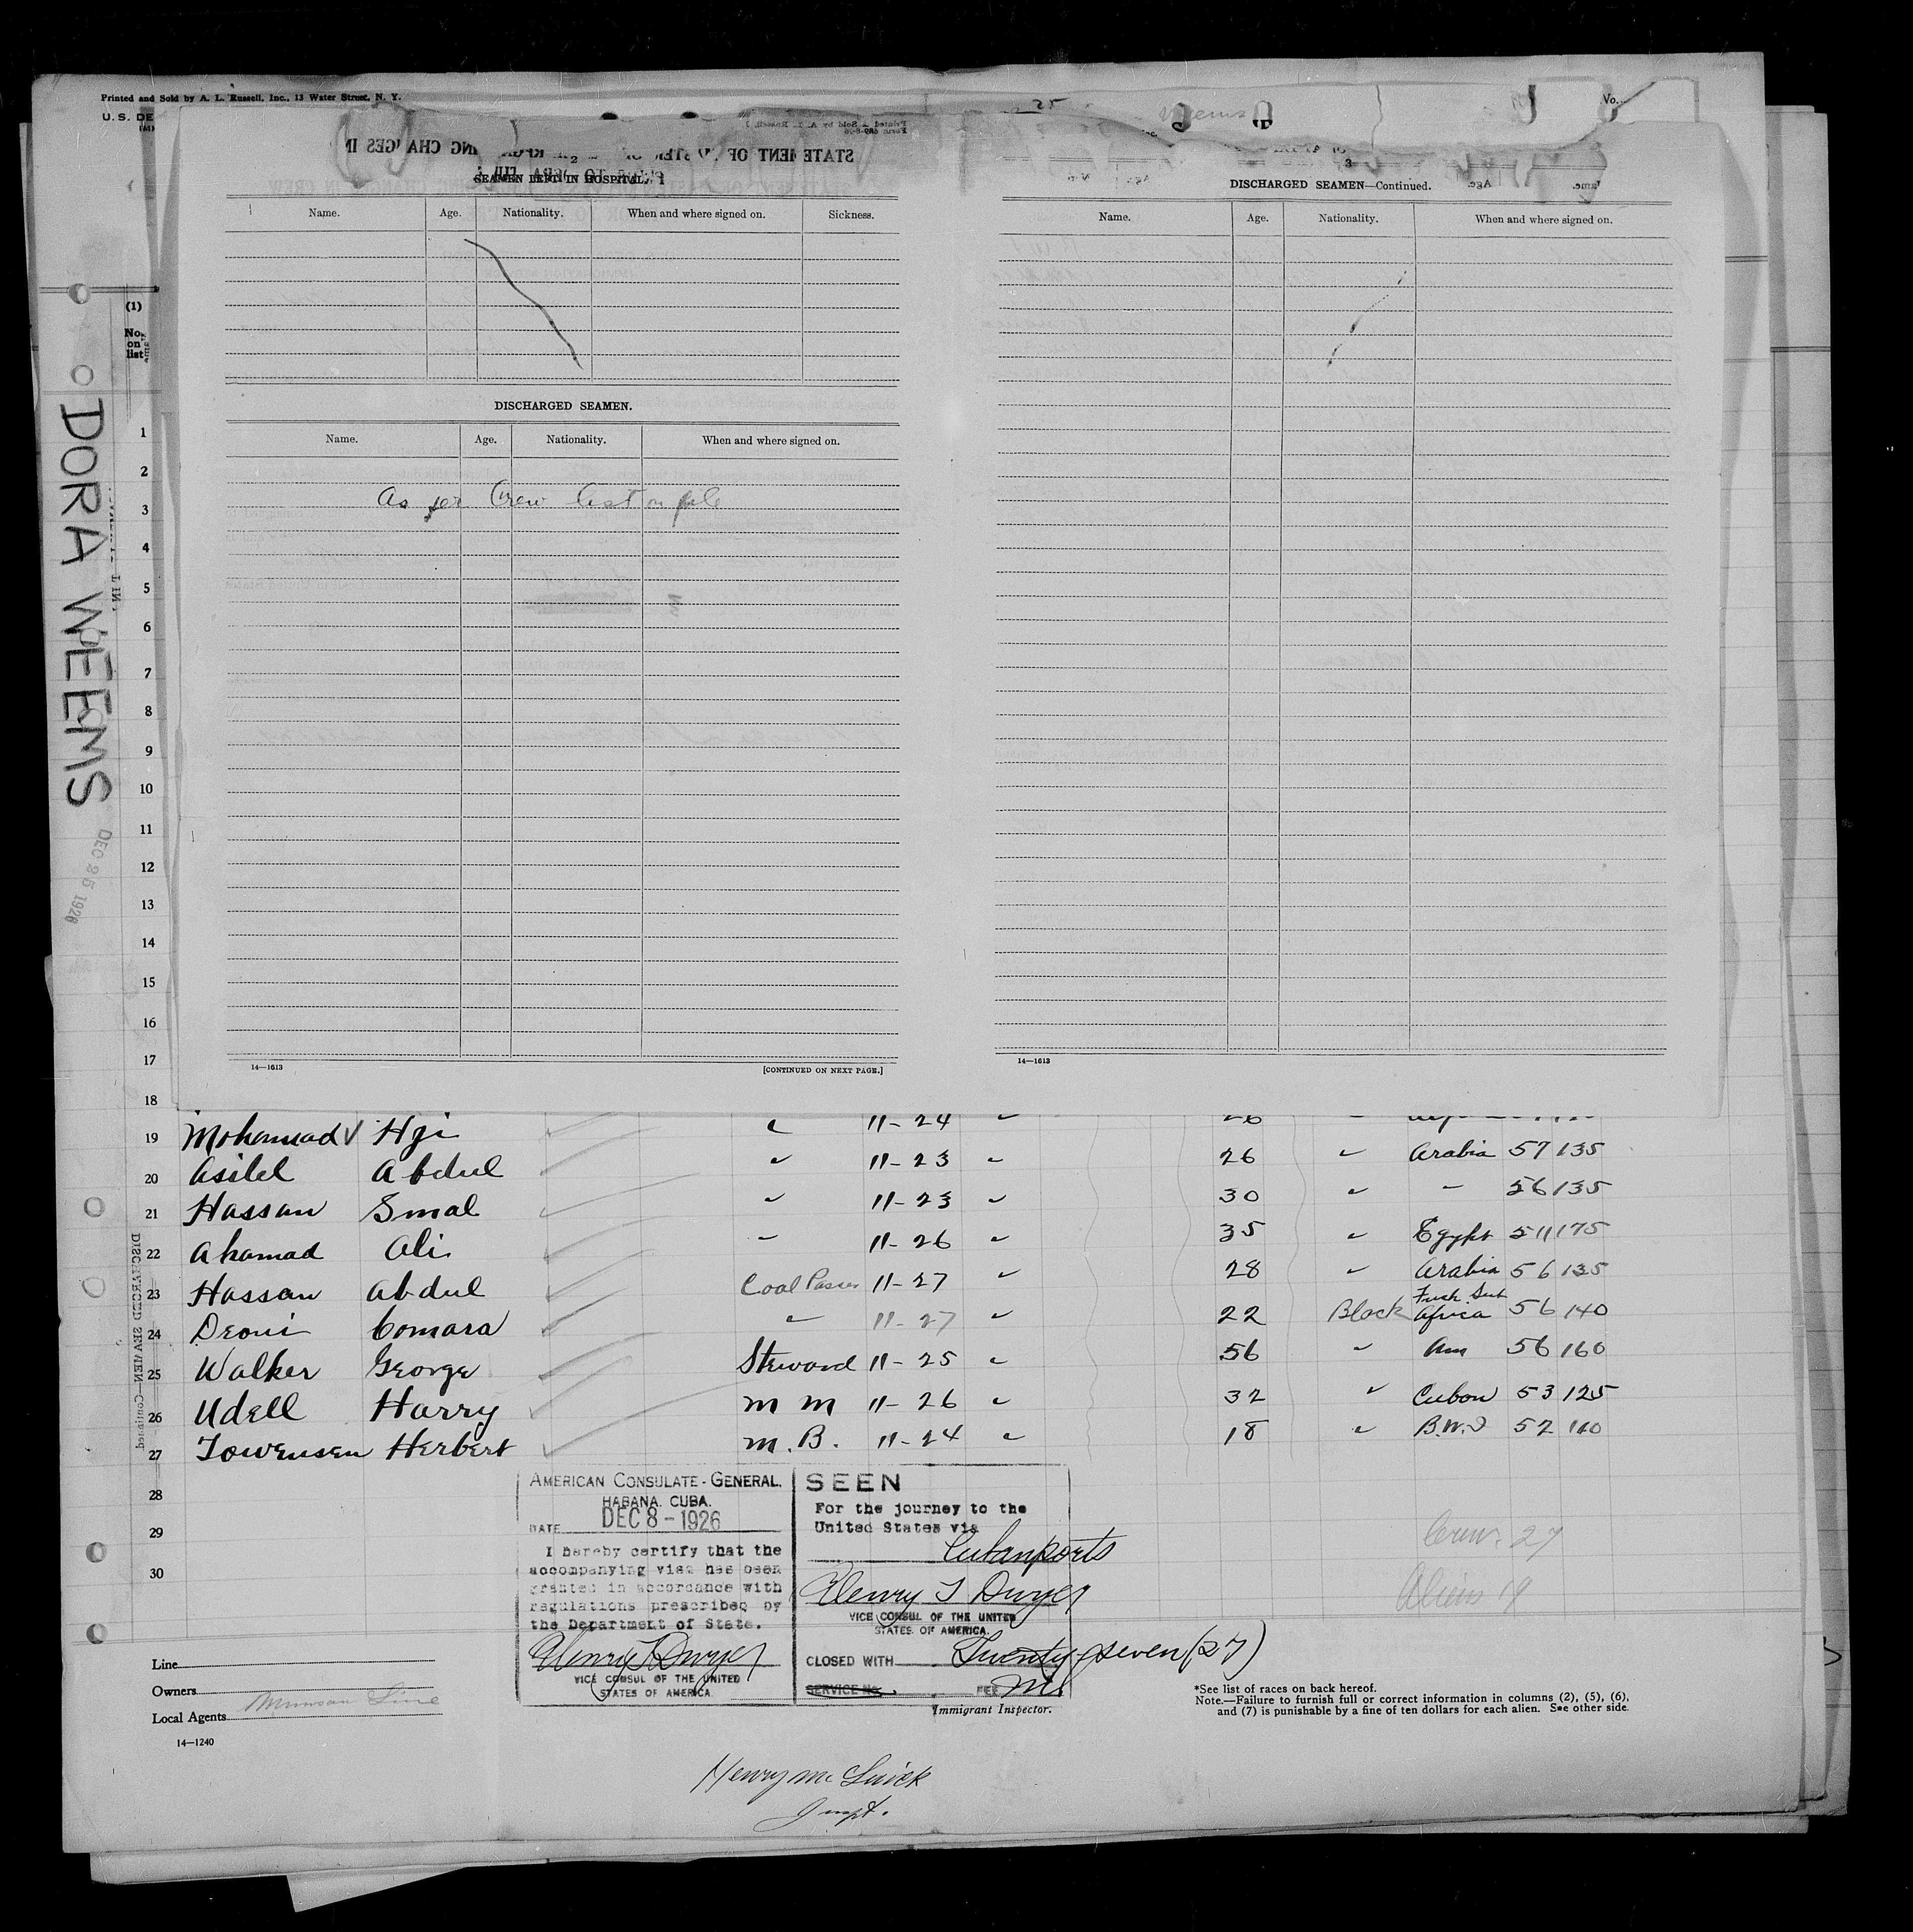 Printed and Sold by A. L. Russell, Inc., 13 Water Street, N. Y.
U. S. DE
25
No.
STATEMENT OF
ING CHANGES IN
2
3
SEAMEN LEFT IN HOSPITAL.
Name. Age. Nationality. When and where signed on. Sickness.
DISCHARGED SEAMEN.
Name. Age. Nationality. When and where signed on.
As per Crew list on file
14—1613
[CONTINUED ON NEXT PAGE.]
DISCHARGED SEAMEN—Continued.
Name. Age. Nationality. When and where signed on.
14—1613
(1)
No. on list
DORA WEEMS
DEC 25 1926
DISCHARGED SEAMEN—Continued.
1
2
3
4
5
6
7
8
9
10
11
12
13
14
15
16
17
18
11-24 26
19 Mohamad Hji
20 Asilel Abdul " 11-23 " 26 " Arabia 57 135
21 Hassan Smal " 11-23 " 30 " " 56 135
22 Ahamad Ali " 11-26 " 35 " Egypt 511 175
23 Hassan Abdul Coal Passer 11-27 " 28 " Arabia 56 135
24 Deoni Comara " 11-27 " 22 Black Fnch Sub Africa 56 140
25 Walker George Steward 11-25 " 56 " Am 56 160
26 Udell Harry m m 11-26 " 32 " Cuban 53 125
27 Towensen Herbert m.B. 11-24 " 18 " B.W.I 52 110
28
29
30
AMERICAN CONSULATE-GENERAL.
HABANA. CUBA.
DATE DEC 8-1926
I hereby certify that the
accompanying visa has been
granted in accordance with
regulations prescribed by
the Department of State.
Henry T Dwyer
VICE CONSUL OF THE UNITED
STATES OF AMERICA.
SEEN
For the journey to the
United States via
Cuban ports
Henry T Dwyer
VICE CONSUL OF THE UNITED
STATES OF AMERICA.
CLOSED WITH Twenty seven (27)
SERVICE No. FEE
Immigrant Inspector.
Crew. 27
Aliens 19
Line
Owners
Munson Line
Local Agents
14—1240
*See list of races on back hereof.
Note.—Failure to furnish full or correct information in columns (2), (5), (6),
and (7) is punishable by a fine of ten dollars for each alien. See other side.